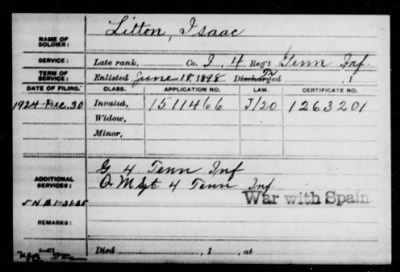 NAME OF SOLDIER: Litton, Isaac
SERVICE: Late rank, Co. I, 4 Reg't Tenn Inf.
TERM OF SERVICE: Enlisted June 18, 1898 Discharged , 1
DATE OF FILING. CLASS. APPLICATION NO. LAW. CERTIFICATE NO.
1924-Dec. 30 Invalid, 1511466 J/20 1263201
Widow,
Minor,
ADDITIONAL SERVICES: G 4 Tenn Inf
Q M Sgt 4 Tenn Inf.
War with Spain.
REMARKS:
Died , 1 , at